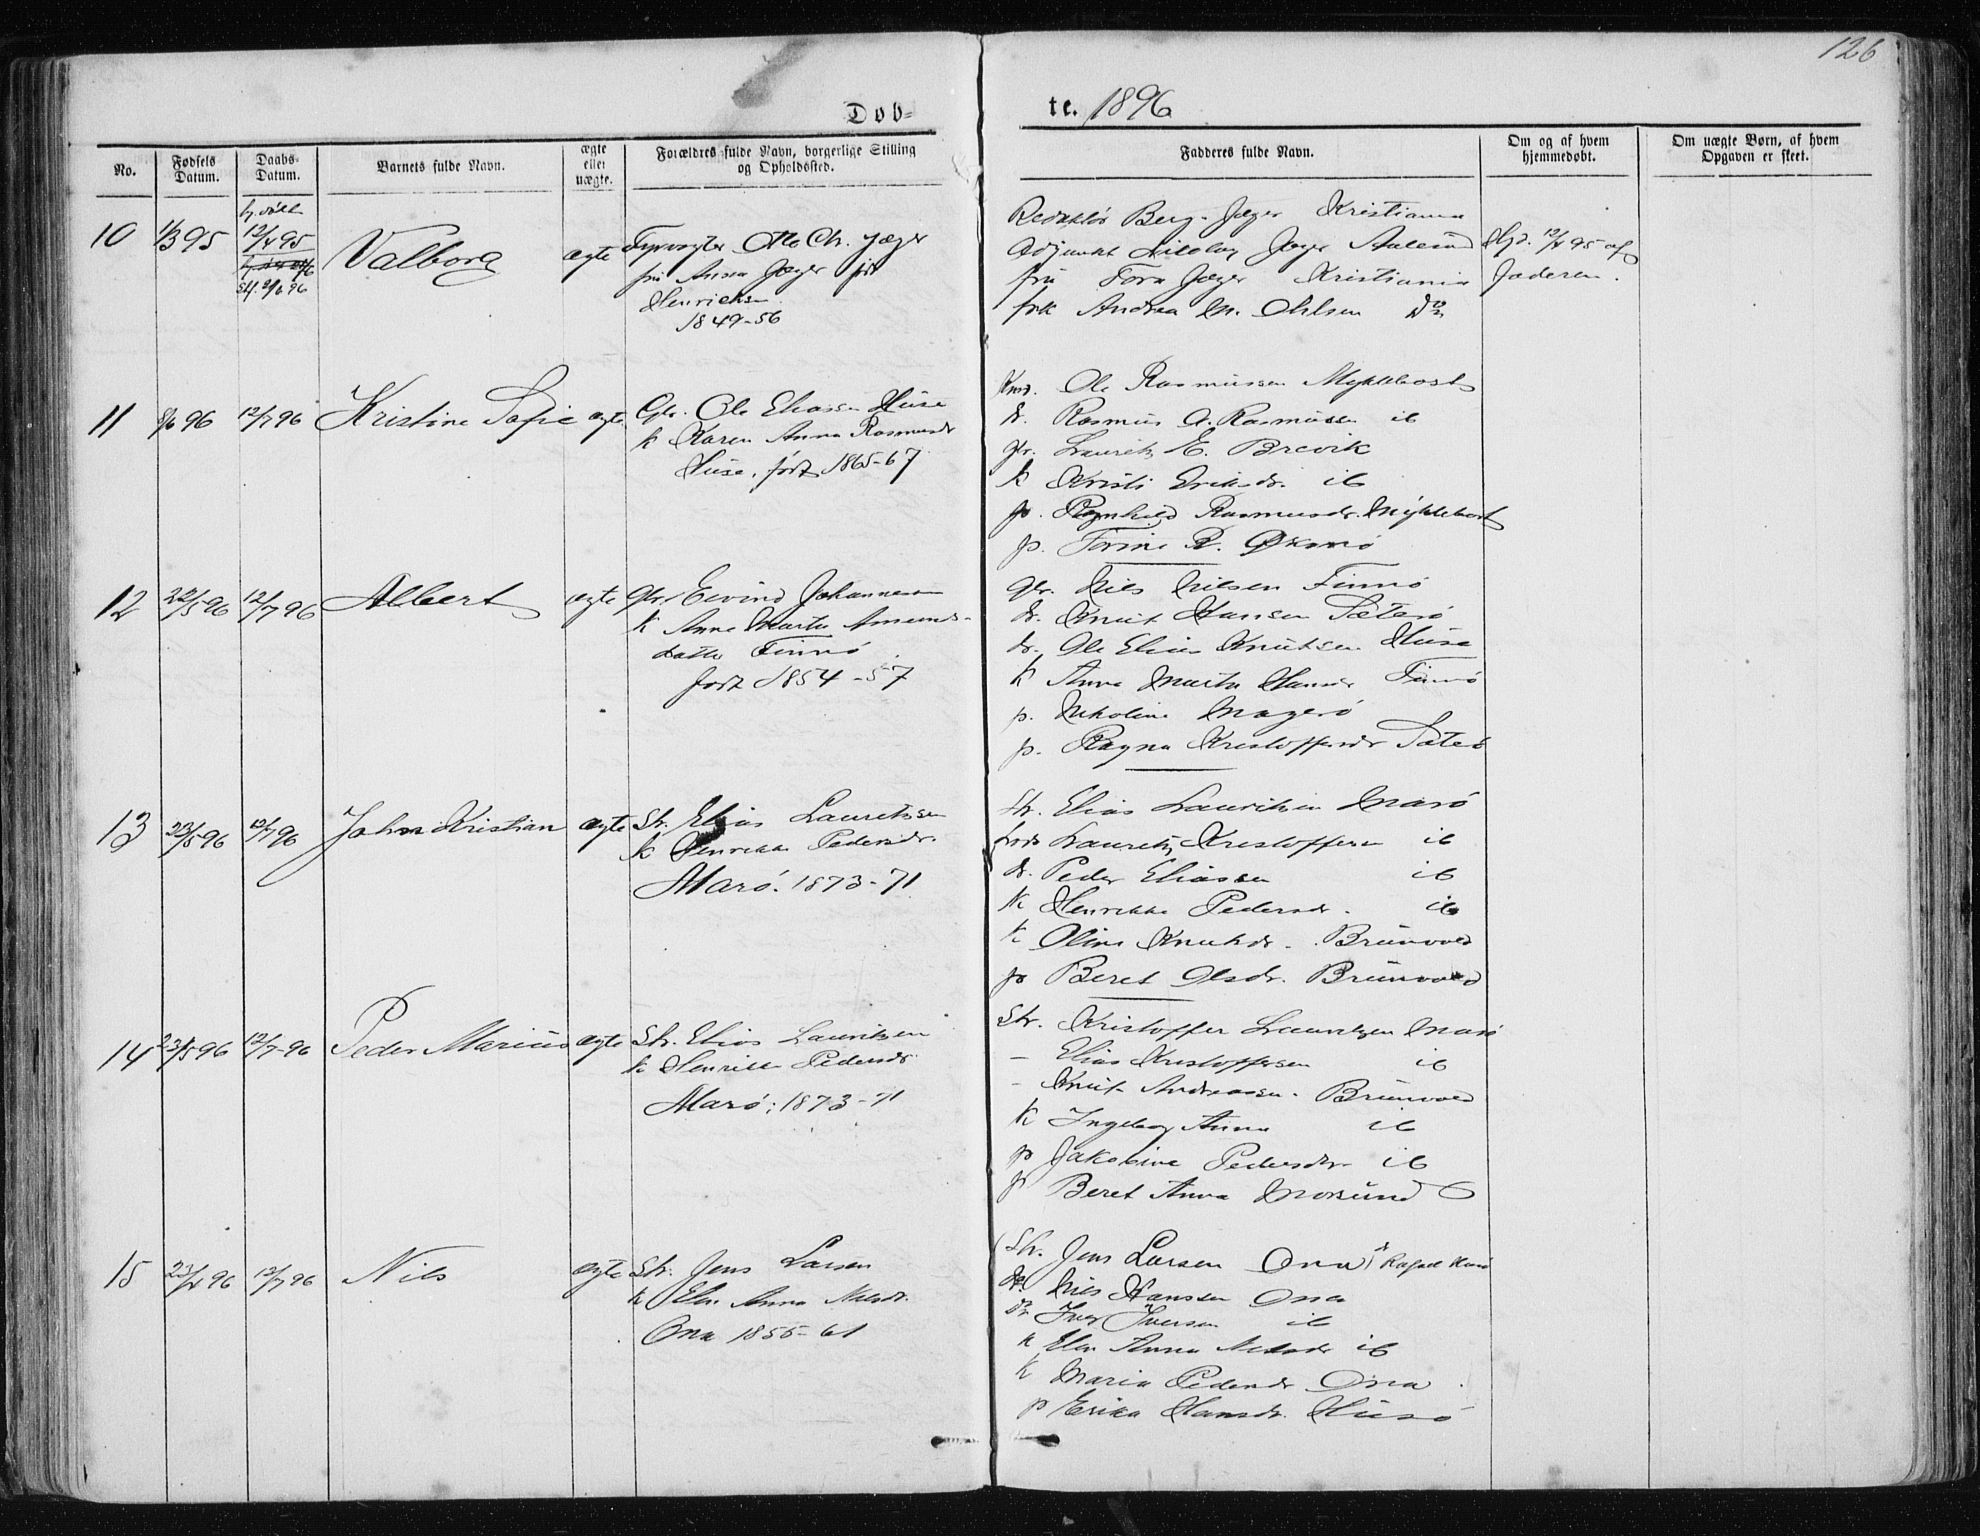 126
Døb-
te. 1896
No.
Fødsels Datum.
Daabs- Datum.
Barnets fulde Navn.
ægte eller uægte.
Forældres fulde Navn, borgerlige Stilling og Opholdssted.
Fadderes fulde Navn.
Om og af hvem hjemmedøbt.
Om uægte Børn, af hvem Opgaven er skeet.
10 1/3 95 12/4 95 Valborg ægte Fyrvogter Otto Ch. Jæger
fru Anna Jæger
Henriksen
1849-56
Redaktør Berg-Jæger Kristiania
Adjunkt Jæger Aalesund
fru Tora Jæger Kristiania
frk Andrea M. Ohlsen do
12/4 95 af
Faderen.
11 8/6 96 12/7 96 Kristine Sofie ægte Gbr. Ole Eliassen Huse
k Karen Anna Rasmusdr
Huse, født 1865-67
Ole Rasmussen Myklebost
Rasmus A. Rasmussen ib
gbr. Laurits E. Brevik
k Kristi Eriksdr. ib
p. Ragnhild Rasmusdr. Myklebost
p. Torine R.
12 22/5 96 12/7 96 Albert ægte gbr Eivind Johannesen
k Anne Marta Amunds-
datter Finnø
født 1854-57
gbr. Nils Nilsen Finnø
Knut Hansen Sæterø
Ole Elias Knutsen Huse
k Anne Marta Hansdr Finnø
p. Nikoline Magerø
p. Ragna Kristoffersdr Sæterø
13 23/5 96 12/7 96 John Kristian ægte Str. Elias Lauritsen
k Henrikke Pedersdr.
Marø. 1873-71
Str. Elias Lauritsen Marø
Laurits Kristoffersen ib
Peder Eliassen ib
k Henrikke Pedersdr. ib
k Oline Knutsdr. Brunvold
p Beret Olsdr. Brunvold
14 23/5 96 12/7 96 Peder Marius ægte Str. Elias Lauritsen
k Henrikke Pedersdr
Marø; 1873-71
Str. Kristoffer Lauritzen Marø
- Elias Kristoffersen ib
- Knut Andreassen. Brunvold
k Ingeborg Anna ib
p Jakobine Pedersdtr. ib
p Beret Anna Morsund
15 23/4 96 12/7 96 Nils ægte Str. Jens Larsen
k Elen Anna Nilsdr.
Ona 1855-61
Str. Jens Larsen Ona
Nils Hanssen Ona
Iver Iversen ib
k Elen Anna Nilsdr ib
k Maria Pedersdr Ona
p Erika Hansdr. Husø